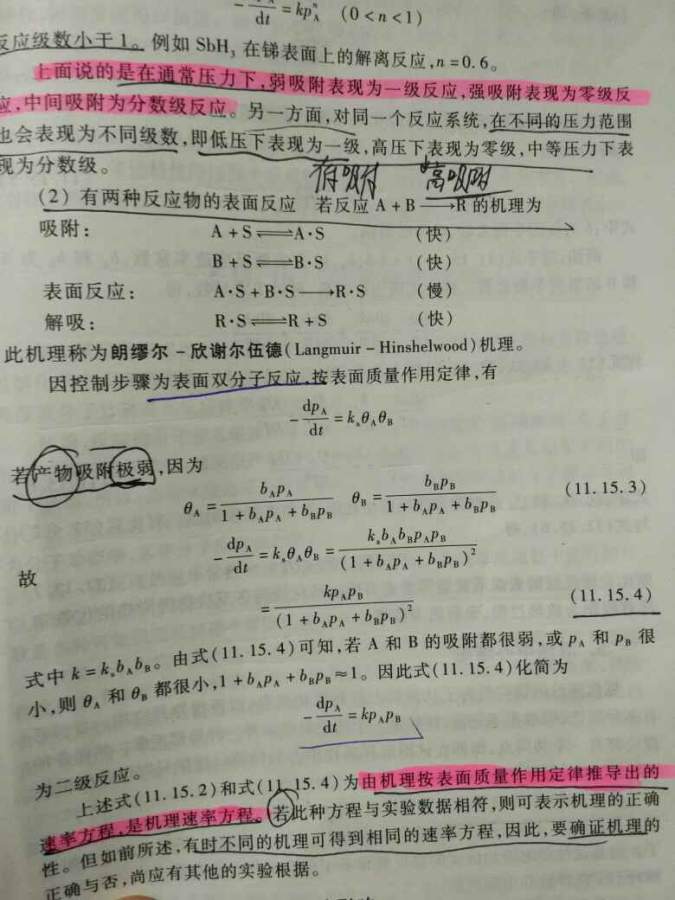 -dp_A/dt = kp_A^n (0<n<1)
反应级数小于1。例如 SbH₃ 在锑表面上的解离反应,n=0.6。
上面说的是在通常压力下,弱吸附表现为一级反应,强吸附表现为零级反
应,中间吸附为分数级反应。另一方面,对同一个反应系统,在不同的压力范围
也会表现为不同级数,即低压下表现为一级,高压下表现为零级,中等压力下表
现为分数级。
(2) 有两种反应物的表面反应 若反应 A+B→R 的机理为
吸附: A+S⇌A·S (快)
B+S⇌B·S (快)
表面反应: A·S+B·S→R·S (慢)
解吸: R·S⇌R+S (快)
此机理称为朗缪尔-欣谢尔伍德(Langmuir-Hinshelwood)机理。
因控制步骤为表面双分子反应,按表面质量作用定律,有
-dp_A/dt = k_sθ_Aθ_B
若产物吸附极弱,因为
θ_A = b_Ap_A/(1+b_Ap_A+b_Bp_B) θ_B = b_Bp_B/(1+b_Ap_A+b_Bp_B) (11.15.3)
故 -dp_A/dt = k_sθ_Aθ_B = k_sb_Ab_Bp_Ap_B/(1+b_Ap_A+b_Bp_B)²
= kp_Ap_B/(1+b_Ap_A+b_Bp_B)² (11.15.4)
式中 k=k_sb_Ab_B。由式(11.15.4)可知,若 A 和 B 的吸附都很弱,或 p_A 和 p_B 很
小,则 θ_A 和 θ_B 都很小,1+b_Ap_A+b_Bp_B≈1。因此式(11.15.4)化简为
-dp_A/dt = kp_Ap_B
为二级反应。
上述式(11.15.2)和式(11.15.4)为由机理按表面质量作用定律推导出的
速率方程,是机理速率方程。若此种方程与实验数据相符,则可表示机理的正确
性。但如前所述,有时不同的机理可得到相同的速率方程,因此,要确证机理的
正确与否,尚应有其他的实验根据。